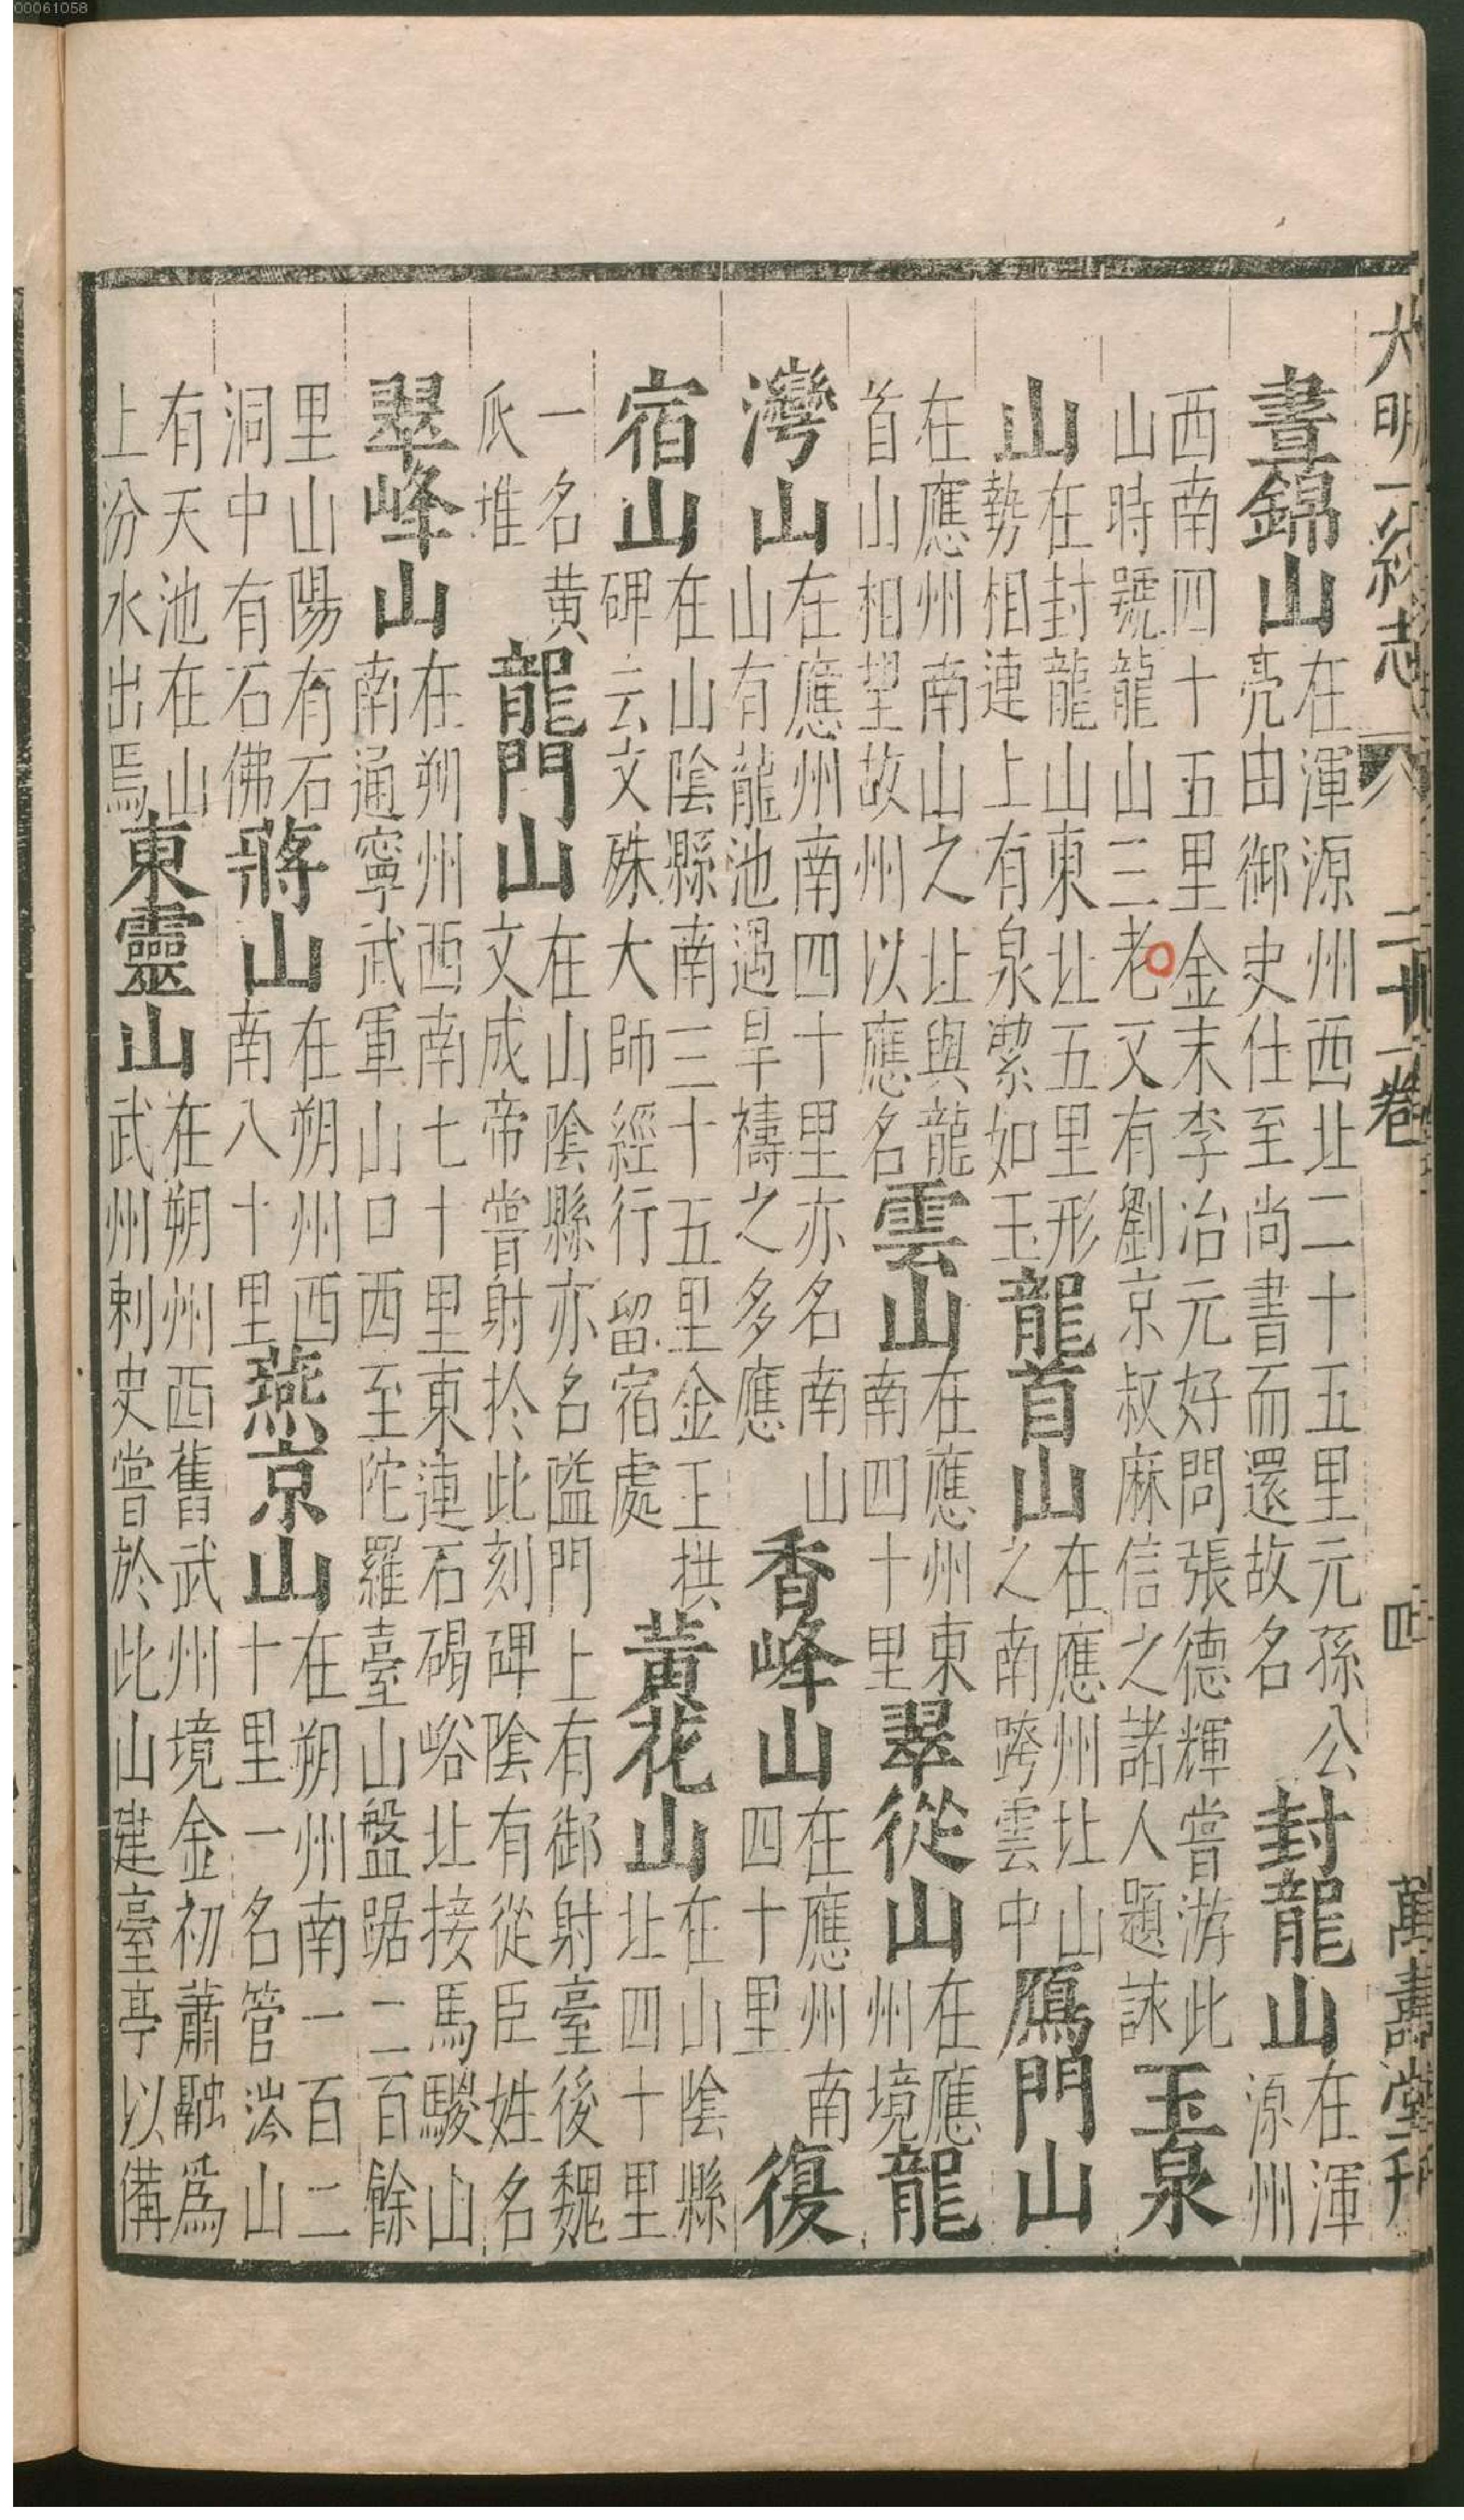 00061058
大明一統志 二十一卷 四 萬壽堂刊
晝錦山在渾源州西北二十五里元孫公亮由御史仕至尚書而還故名封龍山在渾源州
西南四十五里金末李冶元好問張德輝嘗游此山時號龍山三老又有劉京叔麻信之諸人題詠玉泉
山在封龍山東北五里形勢相連上有泉縈如玉龍首山在應州北山之南跨雲中鴈門山
在應州南山之北與龍首山相望故州以應名雲山在應州東南四十里翠從山在應州境龍
灣山在應州南四十里亦名南山山有龍池遇旱禱之多應香峰山在應州南四十里復
宿山在山陰縣南三十五里金王拱碑云文殊大師經行留宿處黃花山在山陰縣北四十里
一名黃瓜堆龍門山在山陰縣亦名隘門上有御射臺後魏文成帝嘗射於此刻碑陰有從臣姓名
翠峰山在朔州西南七十里東連石碣峪北接馬騣山南通寧武軍山口西至陀羅臺山盤踞二百餘
里山陽有石洞中有石佛蔣山在朔州西南八十里燕京山在朔州南一百二十里一名管涔山
有天池在山上汾水出焉東靈山在朔州西舊武州境金初蕭融爲武州剌史嘗於此山建臺亭以備